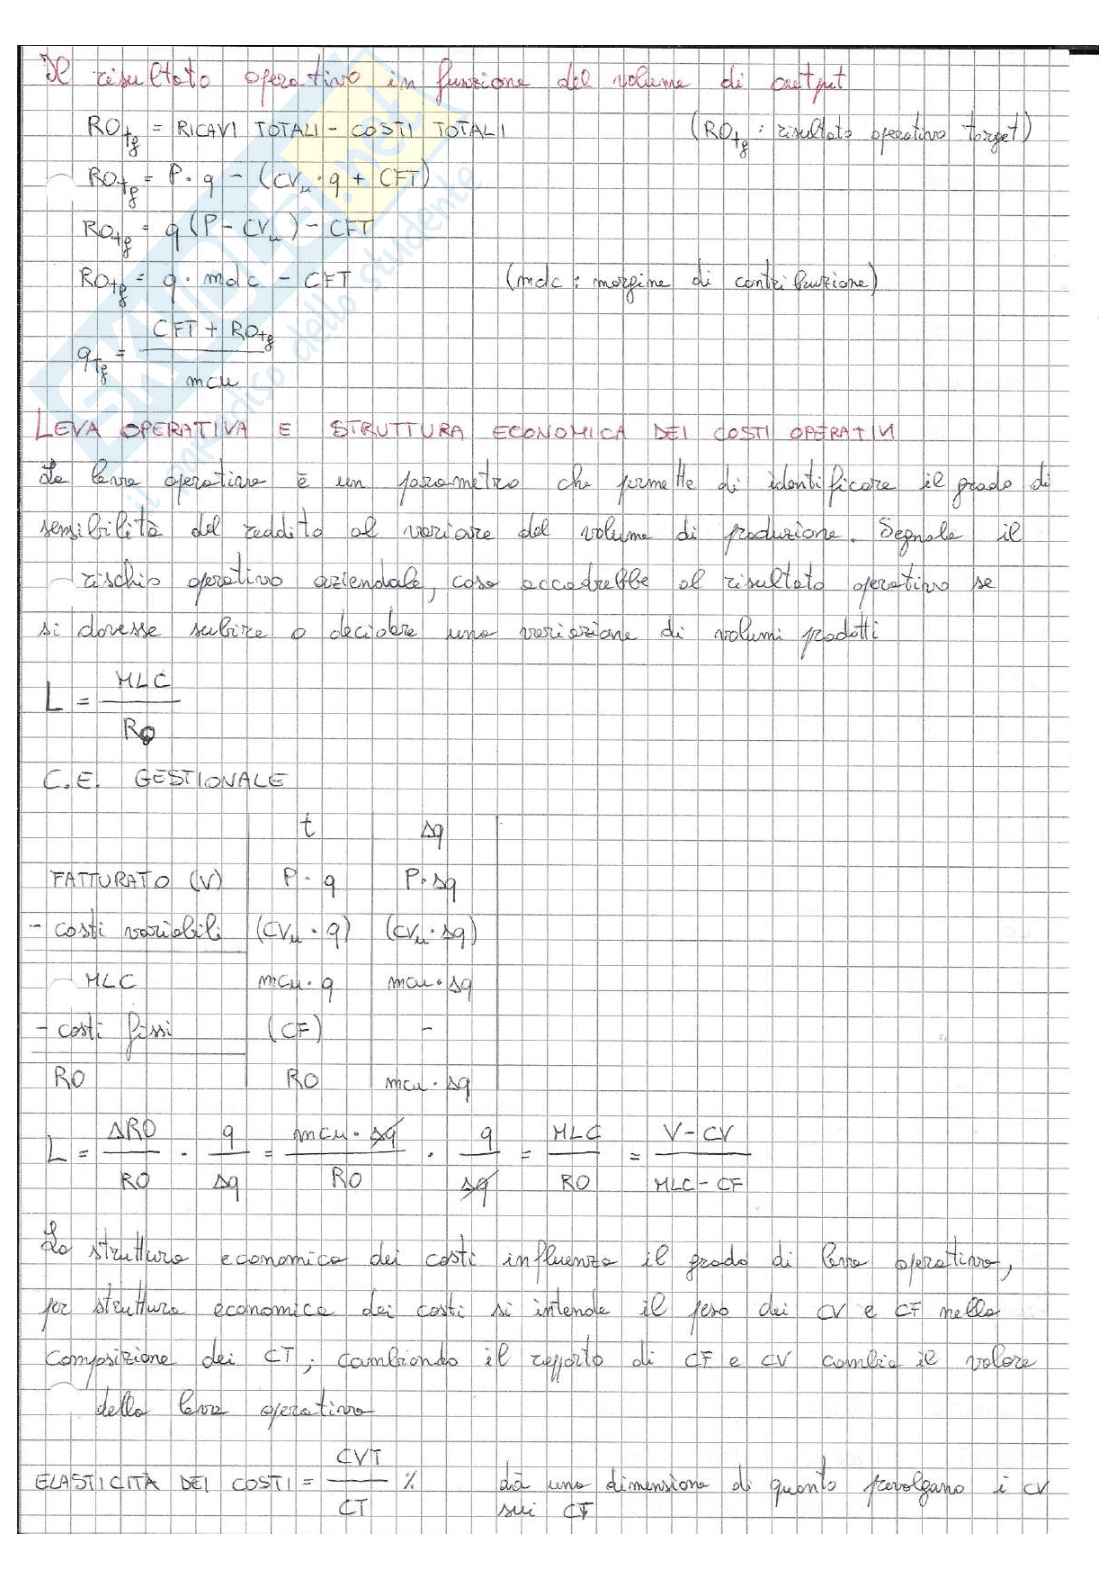 Il risultato operativo in funzione del volume di output
ROtg = RICAVI TOTALI - COSTI TOTALI (ROtg : risultato operativo target)
ROtg = P · q - (CVu · q + CFT)
ROtg = q (P - CVu) - CFT
ROtg = q · mdc - CFT (mdc : margine di contribuzione)
qtg = CFT + ROtg / mcu
LEVA OPERATIVA E STRUTTURA ECONOMICA DEI COSTI OPERATIVI
La leva operativa è un parametro che permette di identificare il grado di
sensibilità del reddito al variare del volume di produzione. Segnala il
rischio operativo aziendale, cosa accadrebbe al risultato operativo se
si dovesse subire o decidere una variazione di volumi prodotti
L = MLC / RO
C.E. GESTIONALE
t Δq
FATTURATO (V) P · q P · Δq
- costi variabili (CVu · q) (CVu · Δq)
MLC mcu · q mcu · Δq
- costi fissi (CF) -
RO RO mcu · Δq
L = ΔRO / RO · q / Δq = mcu · Δq / RO · q / Δq = MLC / RO = V - CV / MLC - CF
La struttura economica dei costi influenza il grado di leva operativa,
per struttura economica dei costi si intende il peso dei CV e CF nella
composizione dei CT ; cambiando il rapporto di CF e CV cambia il valore
della leva operativa
ELASTICITÀ DEI COSTI = CVT / CT % dà una dimensione di quanto pervolgano i CV
sui CF
il paradiso dello studente